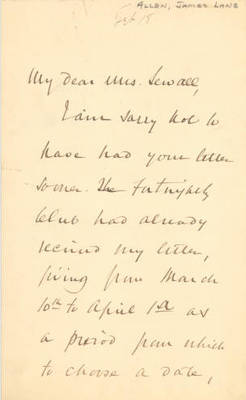 ALLEN, JAMES LANE
Feb 15
My Dear Mrs. Sewall,
I am sorry not to
have had your letter
sooner. The Fortnightly
Club had already
received my letter,
giving from March
10th to April 1st as
a period from which
to choose a date,